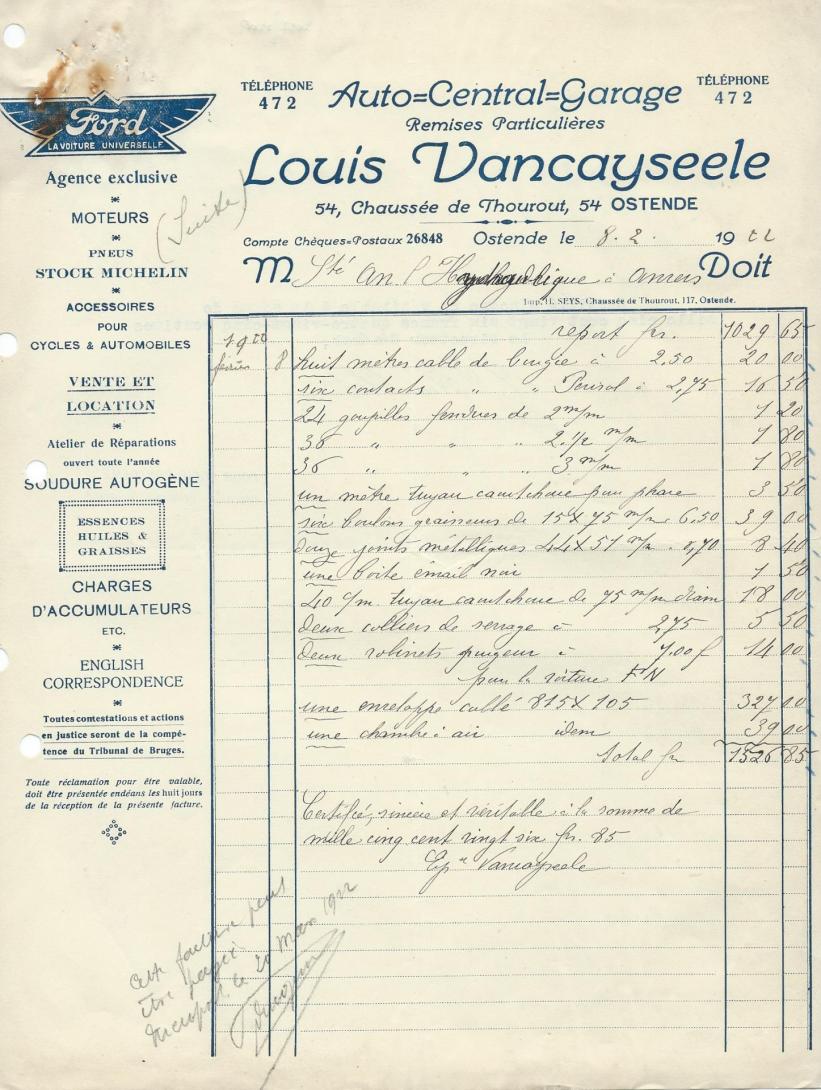 TÉLÉPHONE
472
Auto=Central=Garage
TÉLÉPHONE
472
Remises Particulières
Louis Vancayseele
54, Chaussée de Thourout, 54 OSTENDE
Compte Chèques=Postaux 26848 Ostende le 8.2. 1922
M Sté An. l'Hydraulique à Anvers Doit
Imp. H. SEYS, Chaussée de Thourout, 117, Ostende.
Ford
LA VOITURE UNIVERSELLE
Agence exclusive
(Suite)
MOTEURS
PNEUS
STOCK MICHELIN
ACCESSOIRES
POUR
CYCLES & AUTOMOBILES
VENTE ET
LOCATION
Atelier de Réparations
ouvert toute l'année
SOUDURE AUTOGÈNE
ESSENCES
HUILES &
GRAISSES
CHARGES
D'ACCUMULATEURS
ETC.
ENGLISH
CORRESPONDENCE
Toutes contestations et actions
en justice seront de la compé-
tence du Tribunal de Bruges.
Toute réclamation pour être valable,
doit être présentée endéans les huit jours
de la réception de la présente facture.
1922 report frs. 1029 65
février 8 huit mètres cable de bougie à 2.50 20 00
six contacts " " à 2,75 16 50
24 goupilles fendues de 2 m/m 1 20
36 " " " 2.1/2 m/m 1 80
36 " " " 3 m/m 1 80
un mètre tuyau caoutchouc pour phare 3 50
six boulons graisseurs de 15 X 75 m/m 6.50 39 00
douze joints métalliques 44 X 51 m/m 0,70 8 40
une boite émail noir 1 50
40 c/m. tuyau caoutchouc de 75 m/m diam 18 00
deux colliers de serrage à 2,75 5 50
deux robinets purgeur à 7.00 f 14 00
pour la voiture FN
une enveloppe cablé 815 X 105 327 00
une chambre à air idem 39 00
total frs 1526 85
Certifiée, sincère et véritable à la somme de
mille cinq cent vingt six frs. 85
Vancayseele
Cette facture peut
être payée
le 20 Mars 1922